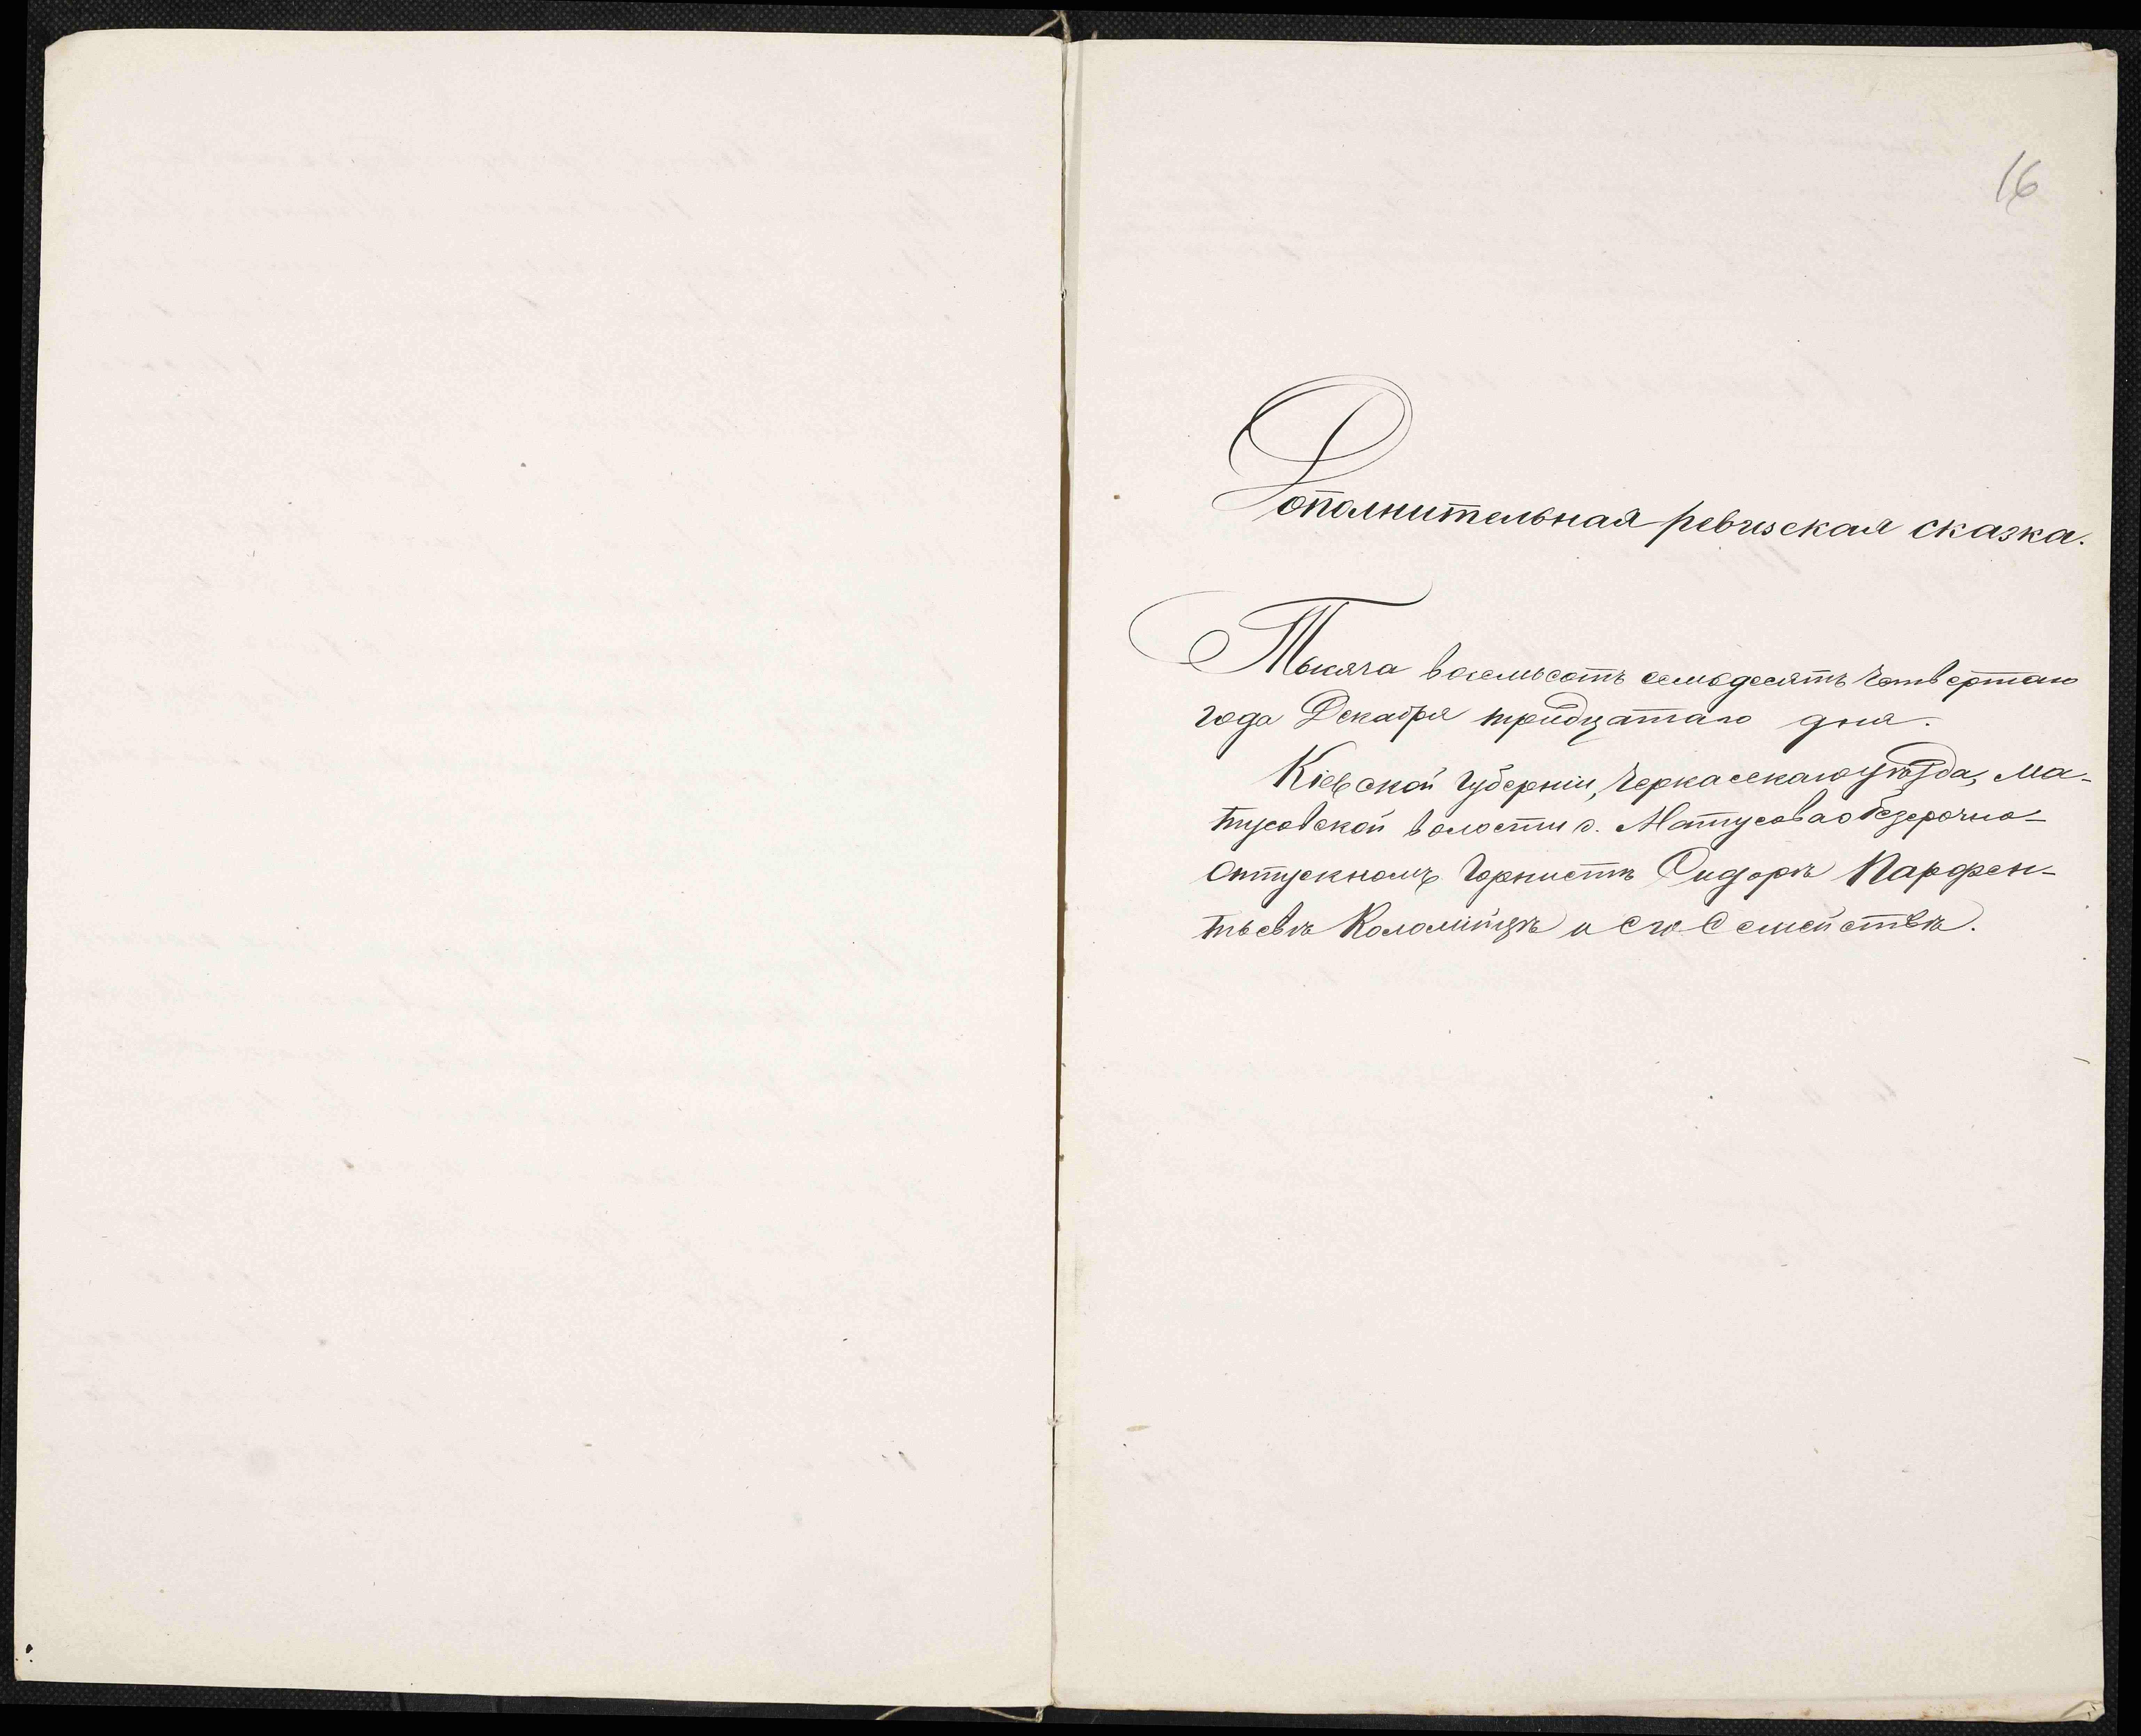 16
Дополнительная ревизская сказка.
Тысяча восемьсотъ семьдесятъ четвертаго
года Декабря тридцатаго дня.
Кіевской Губерніи, Черкасскаго уѣзда, Ма-
тусовской волости с. Матусова о безсрочно-
отпускномъ Горнистѣ Сидорѣ Парфен-
тьевѣ Коломійцѣ и его Семействѣ.